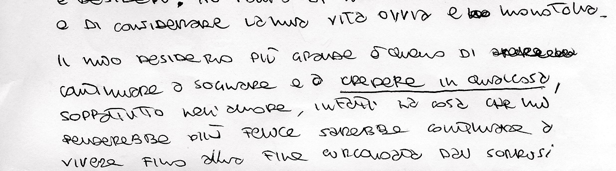 e di considerare la mia vita ovvia e monotona.
Il mio desiderio più grande è quello di
continuare a sognare e a credere in qualcosa,
soprattutto nell'amore, infatti la cosa che mi
renderebbe più felice sarebbe continuare a
vivere fino alla fine circondata dai sorrisi